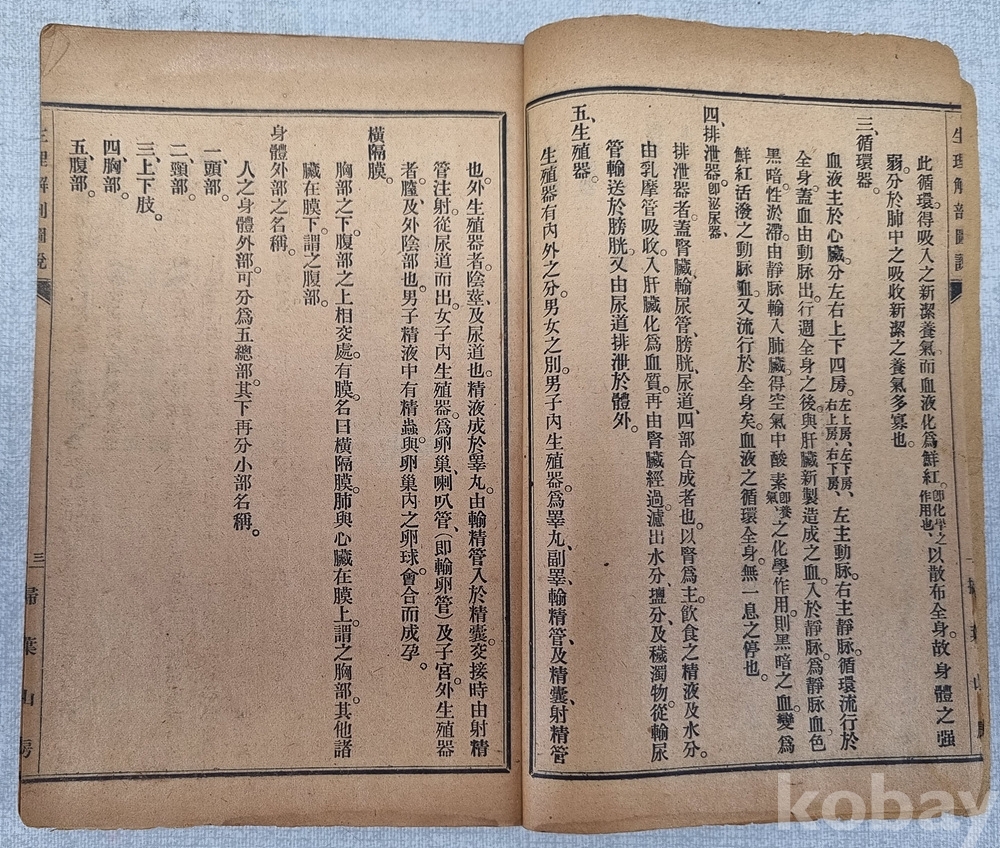 生理解剖圖說
此循環得吸入之新潔養氣而血液化爲鮮紅。卽化學之作用也、以散布全身。故身體之强
弱。分於肺中之吸收新潔之養氣多寡也。
三、循環器。
血液主於心臟。分左右上下四房。左上房、左下房、右上房、右下房、左主動脉。右主靜脉。循環流行於
全身。蓋血由動脉出。行週全身之後。與肝臟新製造成之血。入於靜脉。爲靜脉血。色
黑暗性淤滯。由靜脉輸入肺臟。得空氣中酸素卽養氣、之化學作用。則黑暗之血。變爲
鮮紅活潑之動脉血。又流行於全身矣。血液之循環全身。無一息之停也。
四、排泄器。卽泌尿器、
排泄器者。蓋腎臟、輸尿管、膀胱、尿道、四部合成者也。以腎爲主。飲食之精液及水分。
由乳摩管吸收。入肝臟化爲血質。再由腎臟經過。濾出水分、塩分、及穢濁物。從輸尿
管輸送於膀胱。又由尿道排泄於體外。
五、生殖器。
生殖器有內外之分。男女之別。男子內生殖器。爲睪丸、副睪、輸精管、及精囊、射精管
也。外生殖器者。陰莖、及尿道也。精液成於睪丸。由輸精管入於精囊。交接時由射精
管注射。從尿道而出。女子內生殖器。爲卵巢、喇叭管、(卽輸卵管)及子宮。外生殖器
者。膣、及外陰部也。男子精液中有精蟲。與卵巢內之卵球。會合而成孕。
橫隔膜。
胸部之下。腹部之上。相交處。有膜。名曰橫隔膜。肺與心臟在膜上。謂之胸部。其他諸
臟在膜下。謂之腹部。
身體外部之名稱。
人之身體外部。可分爲五總部。其下再分小部名稱。
一、頭部。
二、頸部。
三、上下肢。
四、胸部。
五、腹部。
生理解剖圖說
三
掃葉山房
kobay